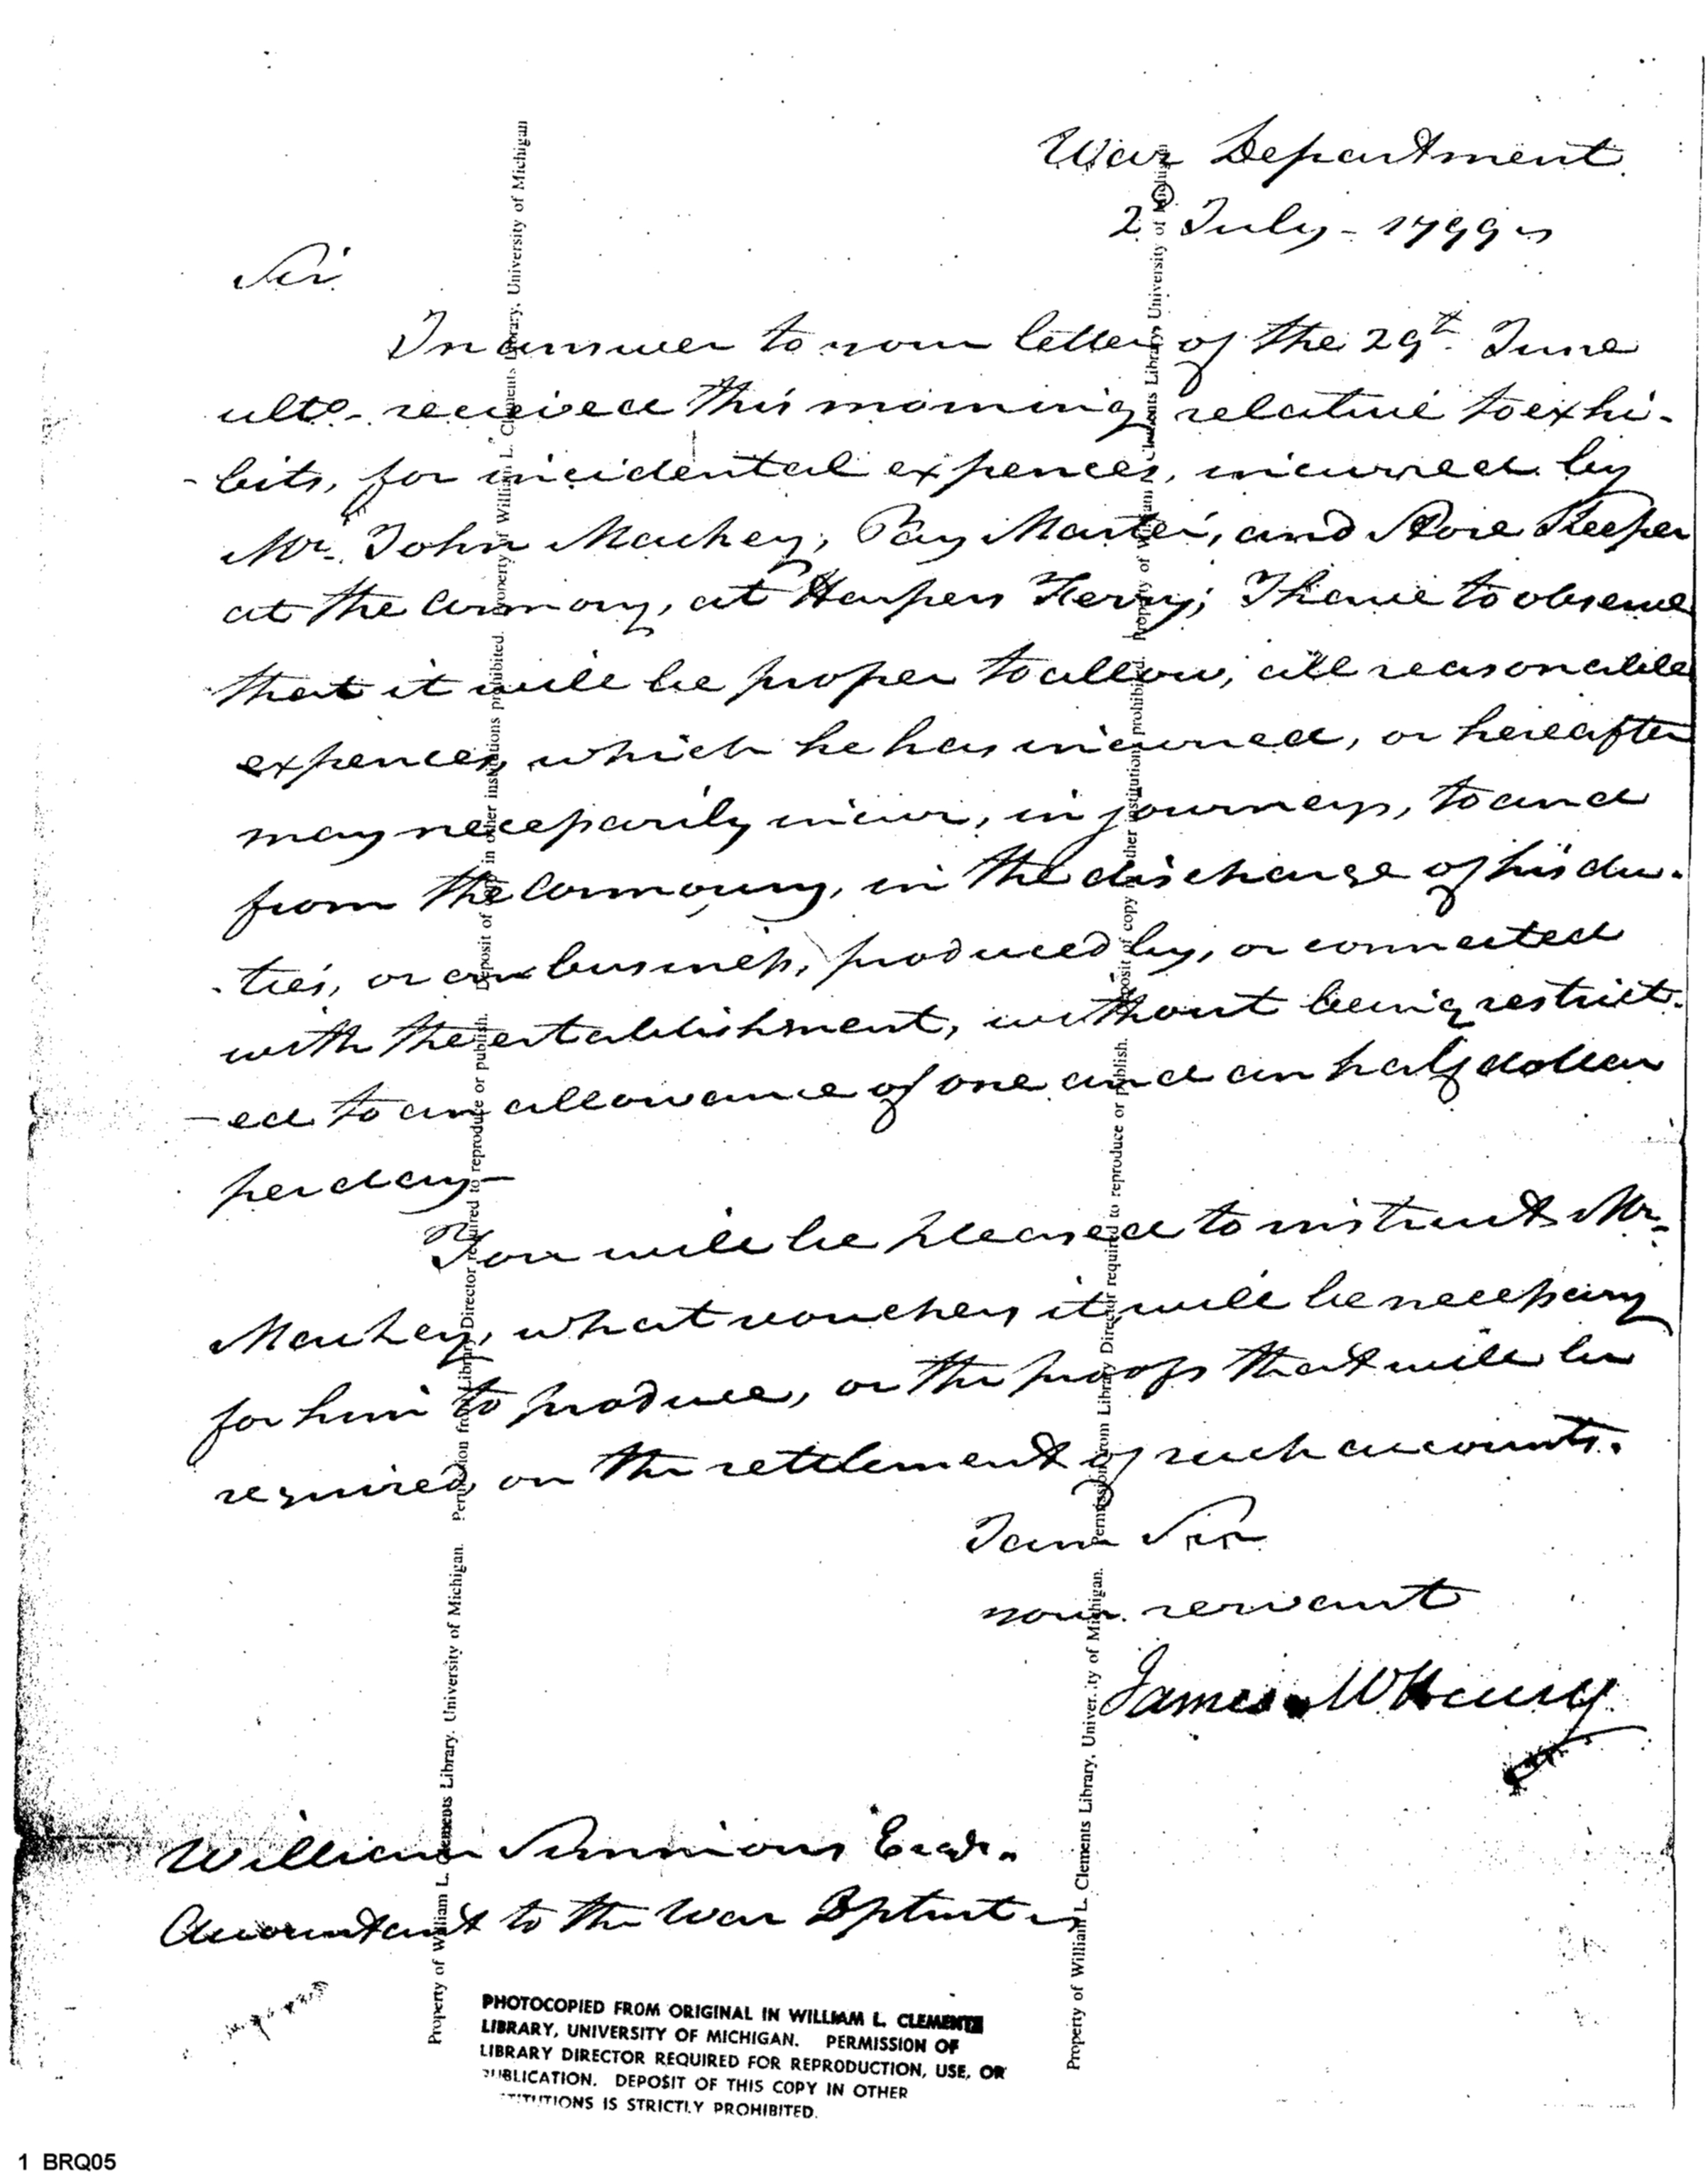 War Department
2d July - 1799
Sir
In answer to your letter of the 29th June
ulto. received this morning relative to exhi-
-bits, for incidental expences, incurred by
Mr. John Mackey, Pay Master, and Store Keeper
at the armory, at Harpers Ferry; I have to observe
that it will be proper to allow, all reasonable
expences, which he has incurred, or hereafter
may necessarily incur, in journeys, to and
from the armoury, in the discharge of his du-
-ties, or on business, produced by, or connected
with the establishment, without being restrict-
-ed to an allowance of one and an half dollar
per day-
You will be pleased to instruct Mr.
Mackey, what vouchers it will be necessary
for him to produce, or the proofs that will be
required on the settlement of such accounts.
I am Sir
your servant
James McHenry
William Simmons Esqr.
Accountant to the War Dptmt
Property of William L. Clements Library, University of Michigan. Permission from Library Director required to reproduce or publish. Deposit of copy in other institutions prohibited. Property of William L. Clements Library, University of Michigan
Property of William L. Clements Library, University of Michigan. Permission from Library Director required to reproduce or publish. Deposit of copy in other institutions prohibited. Property of William L. Clements Library, University of Michigan
PHOTOCOPIED FROM ORIGINAL IN WILLIAM L. CLEMENTS
LIBRARY, UNIVERSITY OF MICHIGAN. PERMISSION OF
LIBRARY DIRECTOR REQUIRED FOR REPRODUCTION, USE, OR
PUBLICATION. DEPOSIT OF THIS COPY IN OTHER
INSTITUTIONS IS STRICTLY PROHIBITED.
1 BRQ05